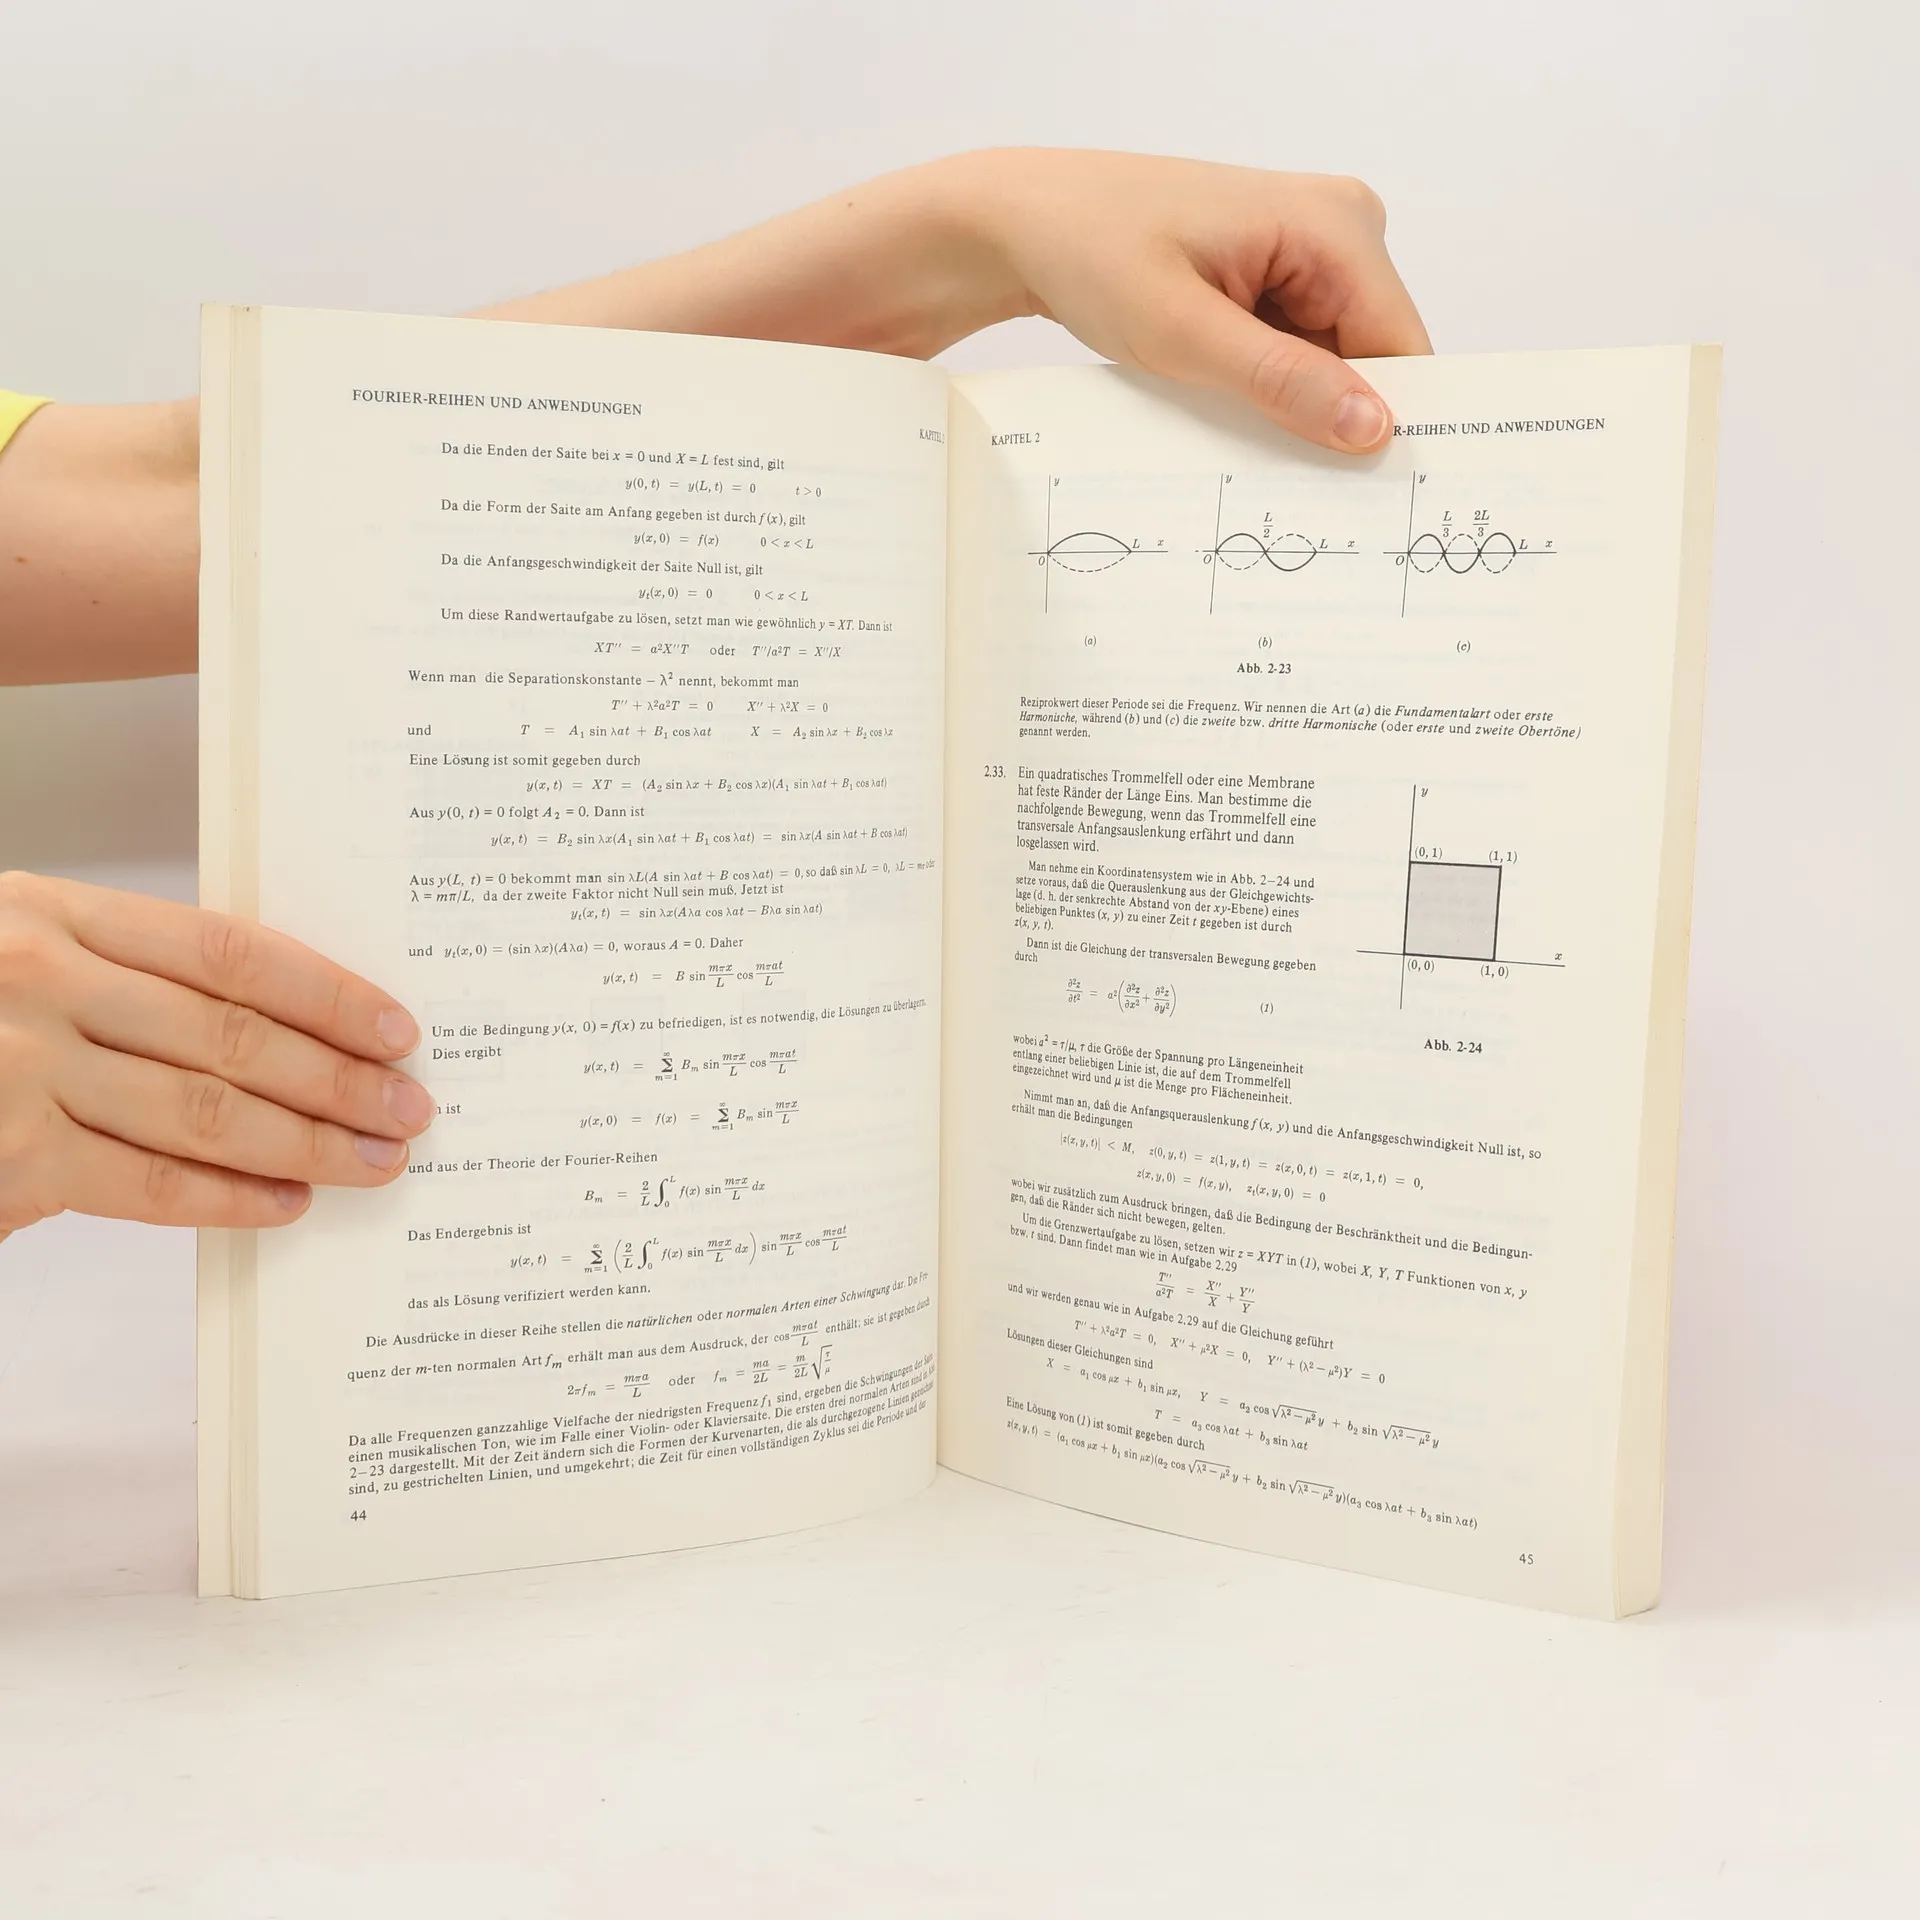 FOURIER-REIHEN UND ANWENDUNGEN
KAPITEL 2
Da die Enden der Saite bei x = 0 und X = L fest sind, gilt
y(0, t) = y(L, t) = 0 t > 0
Da die Form der Saite am Anfang gegeben ist durch f(x), gilt
y(x, 0) = f(x) 0 < x < L
Da die Anfangsgeschwindigkeit der Saite Null ist, gilt
yₜ(x, 0) = 0 0 < x < L
Um diese Randwertaufgabe zu lösen, setzt man wie gewöhnlich y = XT. Dann ist
XT'' = a²X''T oder T''/a²T = X''/X
Wenn man die Separationskonstante – λ² nennt, bekommt man
T'' + λ²a²T = 0 X'' + λ²X = 0
und T = A₁ sin λat + B₁ cos λat X = A₂ sin λx + B₂ cos λx
Eine Lösung ist somit gegeben durch
y(x, t) = XT = (A₂ sin λx + B₂ cos λx)(A₁ sin λat + B₁ cos λat)
Aus y(0, t) = 0 folgt A₂ = 0. Dann ist
y(x, t) = B₂ sin λx(A₁ sin λat + B₁ cos λat) = sin λx(A sin λat + B cos λat)
Aus y(L, t) = 0 bekommt man sin λL(A sin λat + B cos λat) = 0, so daß sin λL = 0, λL = mπ oder
λ = mπ/L, da der zweite Faktor nicht Null sein muß. Jetzt ist
yₜ(x, t) = sin λx(Aλa cos λat – Bλa sin λat)
und yₜ(x, 0) = (sin λx)(Aλa) = 0, woraus A = 0. Daher
y(x, t) = B sin mπx/L cos mπat/L
Um die Bedingung y(x, 0) = f(x) zu befriedigen, ist es notwendig, die Lösungen zu überlagern.
Dies ergibt
y(x, t) = ∑_{m=1}^{∞} Bₘ sin mπx/L cos mπat/L
ist
y(x, 0) = f(x) = ∑_{m=1}^{∞} Bₘ sin mπx/L
und aus der Theorie der Fourier-Reihen
Bₘ = 2/L ∫₀ᴸ f(x) sin mπx/L dx
Das Endergebnis ist
y(x, t) = ∑_{m=1}^{∞} (2/L ∫₀ᴸ f(x) sin mπx/L dx) sin mπx/L cos mπat/L
das als Lösung verifiziert werden kann.
Die Ausdrücke in dieser Reihe stellen die natürlichen oder normalen Arten einer Schwingung dar. Die Fre-
quenz der m-ten normalen Art fₘ erhält man aus dem Ausdruck, der cos mπat/L enthält; sie ist gegeben durch
2πfₘ = mπa/L oder fₘ = ma/2L = m/2L √(τ/μ)
Da alle Frequenzen ganzzahlige Vielfache der niedrigsten Frequenz f₁ sind, ergeben die Schwingungen der Saite
einen musikalischen Ton, wie im Falle einer Violin- oder Klaviersaite. Die ersten drei normalen Arten sind in Abb.
2–23 dargestellt. Mit der Zeit ändern sich die Formen der Kurvenarten, die als durchgezogene Linien gezeichnet
sind, zu gestrichelten Linien, und umgekehrt; die Zeit für einen vollständigen Zyklus sei die Periode und der
44
KAPITEL 2
R-REIHEN UND ANWENDUNGEN
y y y
L/2 L/3 2L/3
O L x O L x O L x
(a) (b) (c)
Abb. 2-23
Reziprokwert dieser Periode sei die Frequenz. Wir nennen die Art (a) die Fundamentalart oder erste
Harmonische, während (b) und (c) die zweite bzw. dritte Harmonische (oder erste und zweite Obertöne)
genannt werden.
2.33. Ein quadratisches Trommelfell oder eine Membrane
hat feste Ränder der Länge Eins. Man bestimme die
nachfolgende Bewegung, wenn das Trommelfell eine
transversale Anfangsauslenkung erfährt und dann
losgelassen wird.
Man nehme ein Koordinatensystem wie in Abb. 2–24 und
setze voraus, daß die Querauslenkung aus der Gleichgewichts-
lage (d. h. der senkrechte Abstand von der xy-Ebene) eines
beliebigen Punktes (x, y) zu einer Zeit t gegeben ist durch
z(x, y, t).
Dann ist die Gleichung der transversalen Bewegung gegeben
durch
∂²z/∂t² = a²(∂²z/∂x² + ∂²z/∂y²) (1)
y
(0, 1) (1, 1)
x
(0, 0) (1, 0)
Abb. 2-24
wobei a² = τ/μ, τ die Größe der Spannung pro Längeneinheit
entlang einer beliebigen Linie ist, die auf dem Trommelfell
eingezeichnet wird und μ ist die Menge pro Flächeneinheit.
Nimmt man an, daß die Anfangsquerauslenkung f(x, y) und die Anfangsgeschwindigkeit Null ist, so
erhält man die Bedingungen
|z(x, y, t)| < M, z(0, y, t) = z(1, y, t) = z(x, 0, t) = z(x, 1, t) = 0,
z(x, y, 0) = f(x, y), zₜ(x, y, 0) = 0
wobei wir zusätzlich zum Ausdruck bringen, daß die Bedingung der Beschränktheit und die Bedingun-
gen, daß die Ränder sich nicht bewegen, gelten.
Um die Grenzwertaufgabe zu lösen, setzen wir z = XYT in (1), wobei X, Y, T Funktionen von x, y
bzw. t sind. Dann findet man wie in Aufgabe 2.29
T''/a²T = X''/X + Y''/Y
und wir werden genau wie in Aufgabe 2.29 auf die Gleichung geführt
T'' + λ²a²T = 0, X'' + μ²X = 0, Y'' + (λ² – μ²)Y = 0
Lösungen dieser Gleichungen sind
X = a₁ cos μx + b₁ sin μx, Y = a₂ cos √(λ² – μ²) y + b₂ sin √(λ² – μ²) y
T = a₃ cos λat + b₃ sin λat
Eine Lösung von (1) ist somit gegeben durch
z(x, y, t) = (a₁ cos μx + b₁ sin μx)(a₂ cos √(λ² – μ²) y + b₂ sin √(λ² – μ²) y)(a₃ cos λat + b₃ sin λat)
45